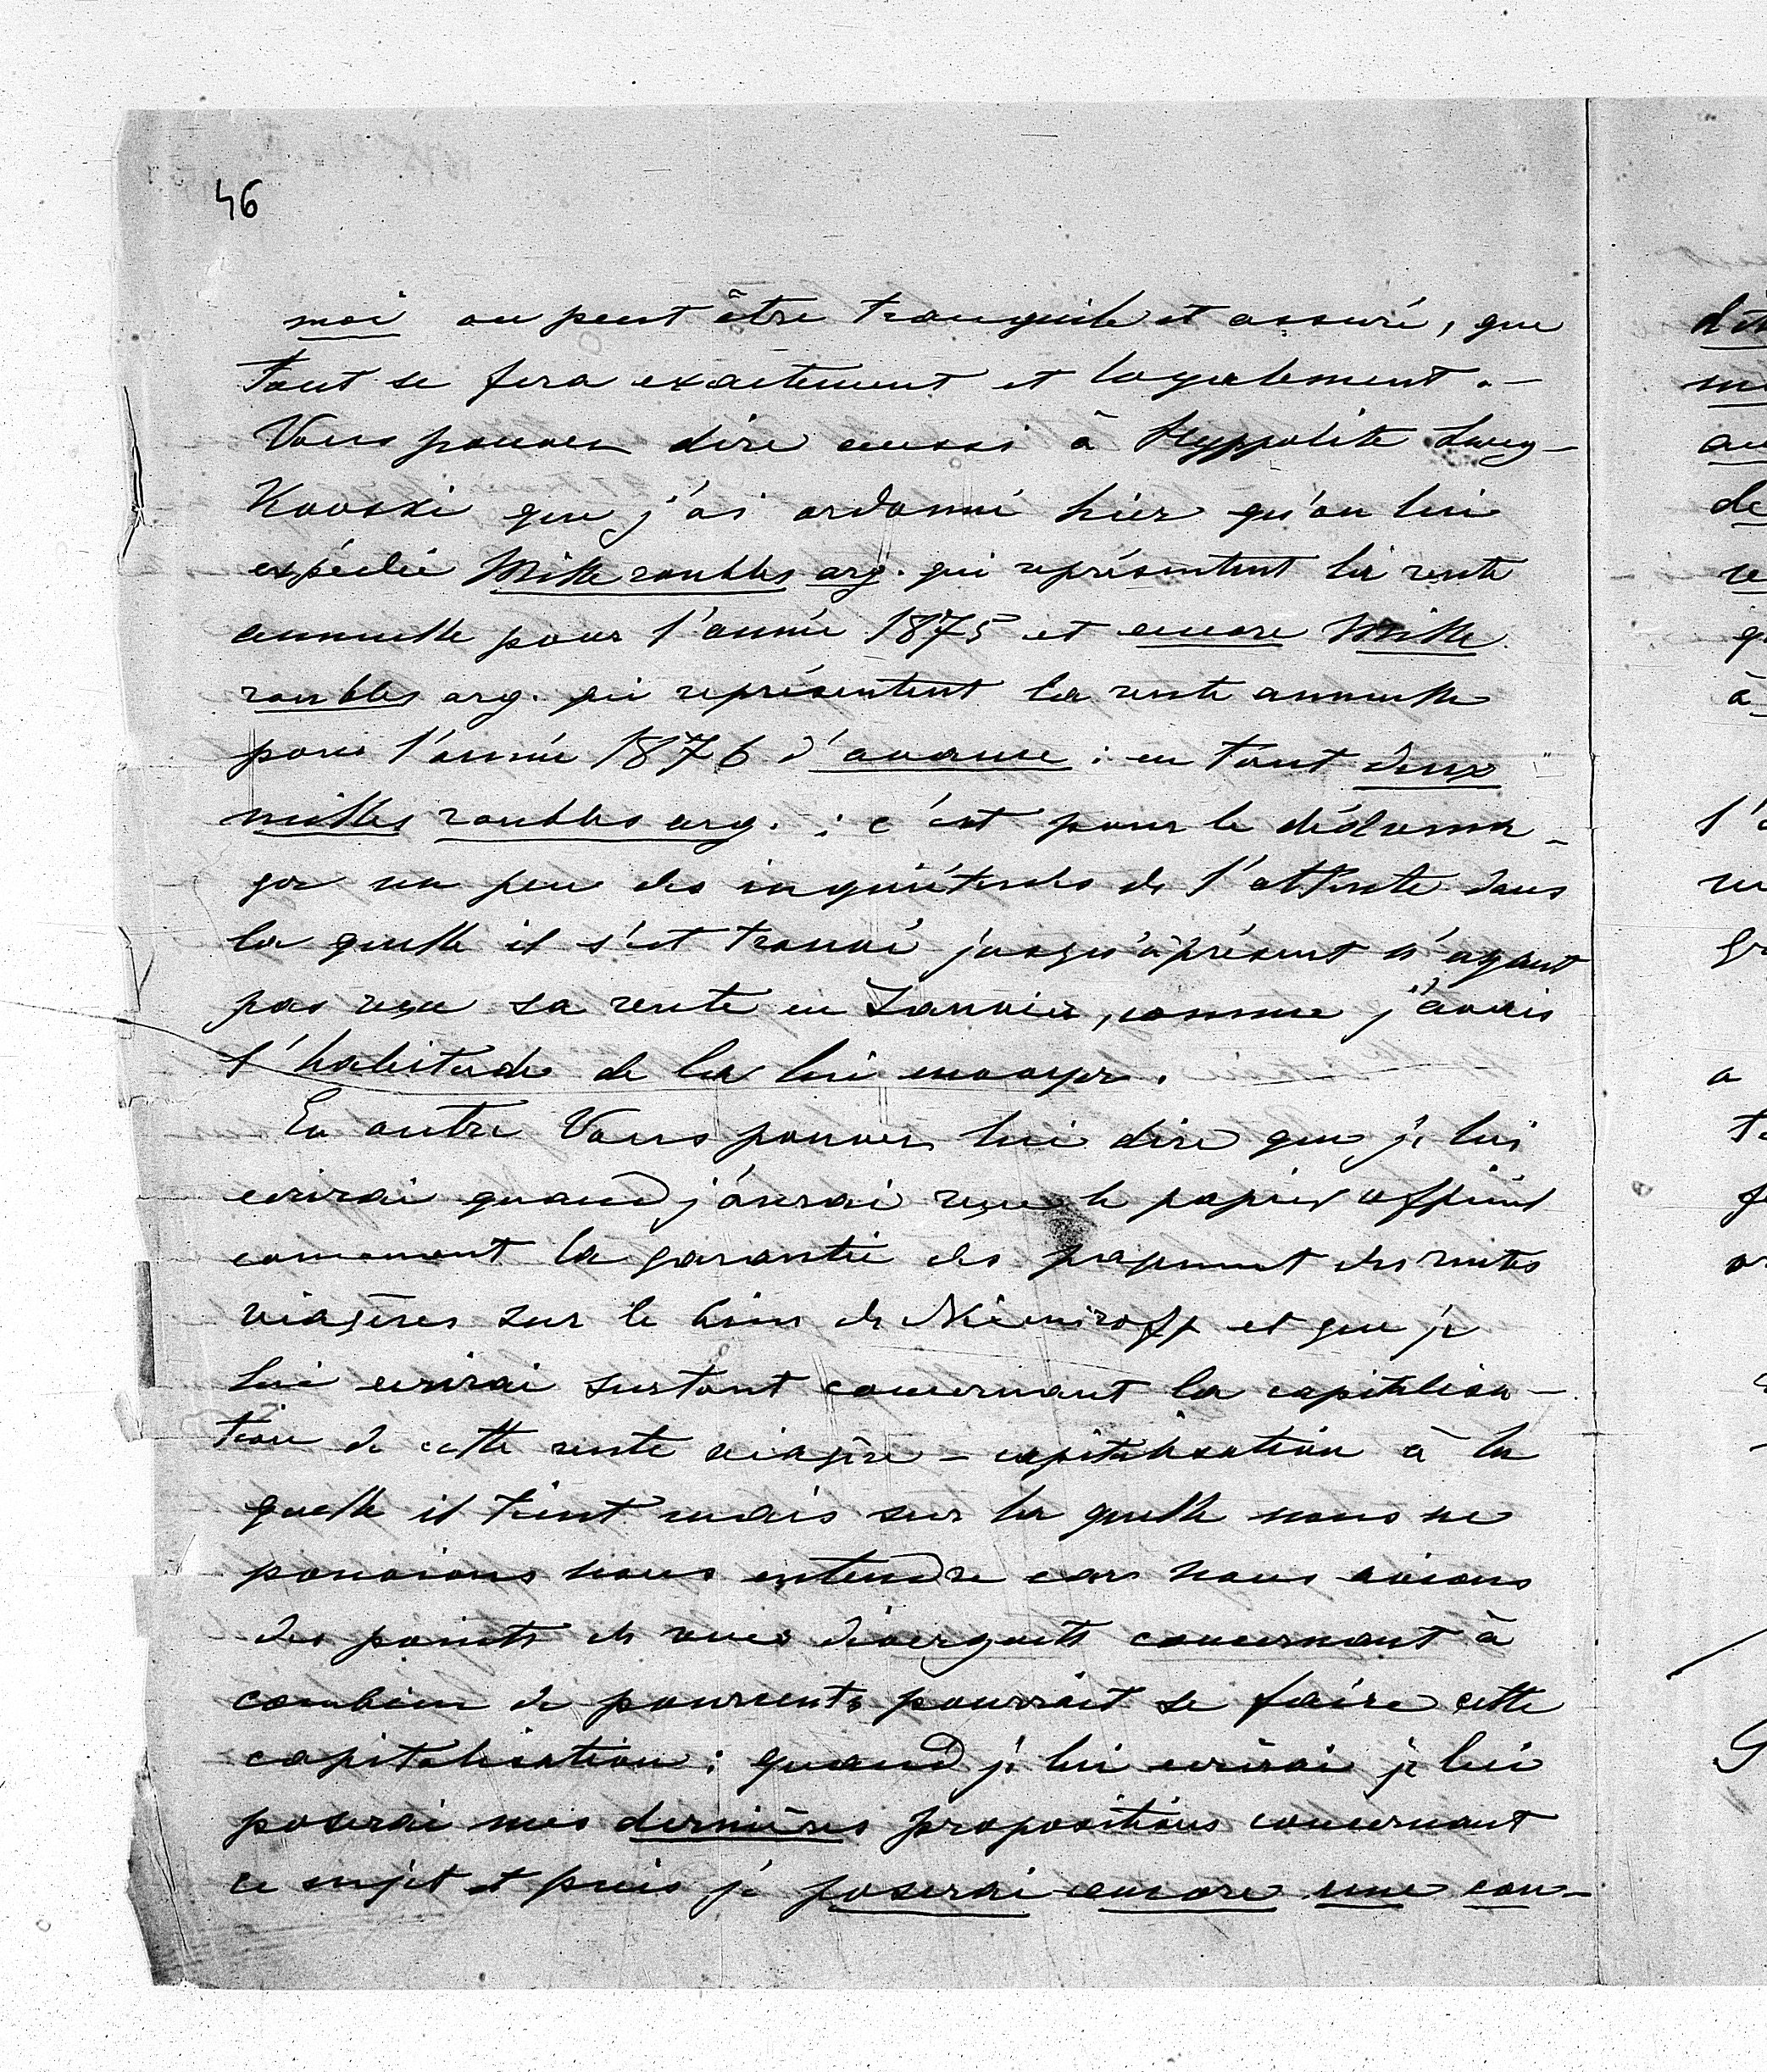 46
moi on peut être tranquile et assuré, que
tout se fera exactement et loyalement. —
Vous pouvez dire aussi à Hyppolite
que j'ai ordonné hier qu'on lui
expédie Mille roubles arg. qui représentent la rente
annuelle pour l'année 1875 et encore Mille
roubles arg. qui représentent la rente annuelle
pour l'année 1876 d'avance : en tout deux
milles roubles arg. : c'est pour le dédoma-
ger un peu des inquiétudes de l'attente dans
la quelle il s'est trouvé jusqu'à présent n'ayant
pas reçu sa rente en Janvier, comme j'avais
l'habitude de la lui envoyer.
En outre Vous pouvez lui dire que je lui
ecrirai quand j'aurai reçu le papier officiel
concernant la garantie du payement des rentes
viagères sur le bien de Niemiroff et que je
lui ecrirai surtout concernant la capitalisa-
tion de cette rente viagère — capitalisation à la
quelle il tient mais sur la quelle nous ne
pouvions nous entendre car nous avions
des points de vues divergents concernant à
combien de pourcents pourrait se faire cette
capitalisation : quand je lui ecrirai je lui
poserai mes dernières propositions concernant
ce sujet et puis je poserai encore une con-